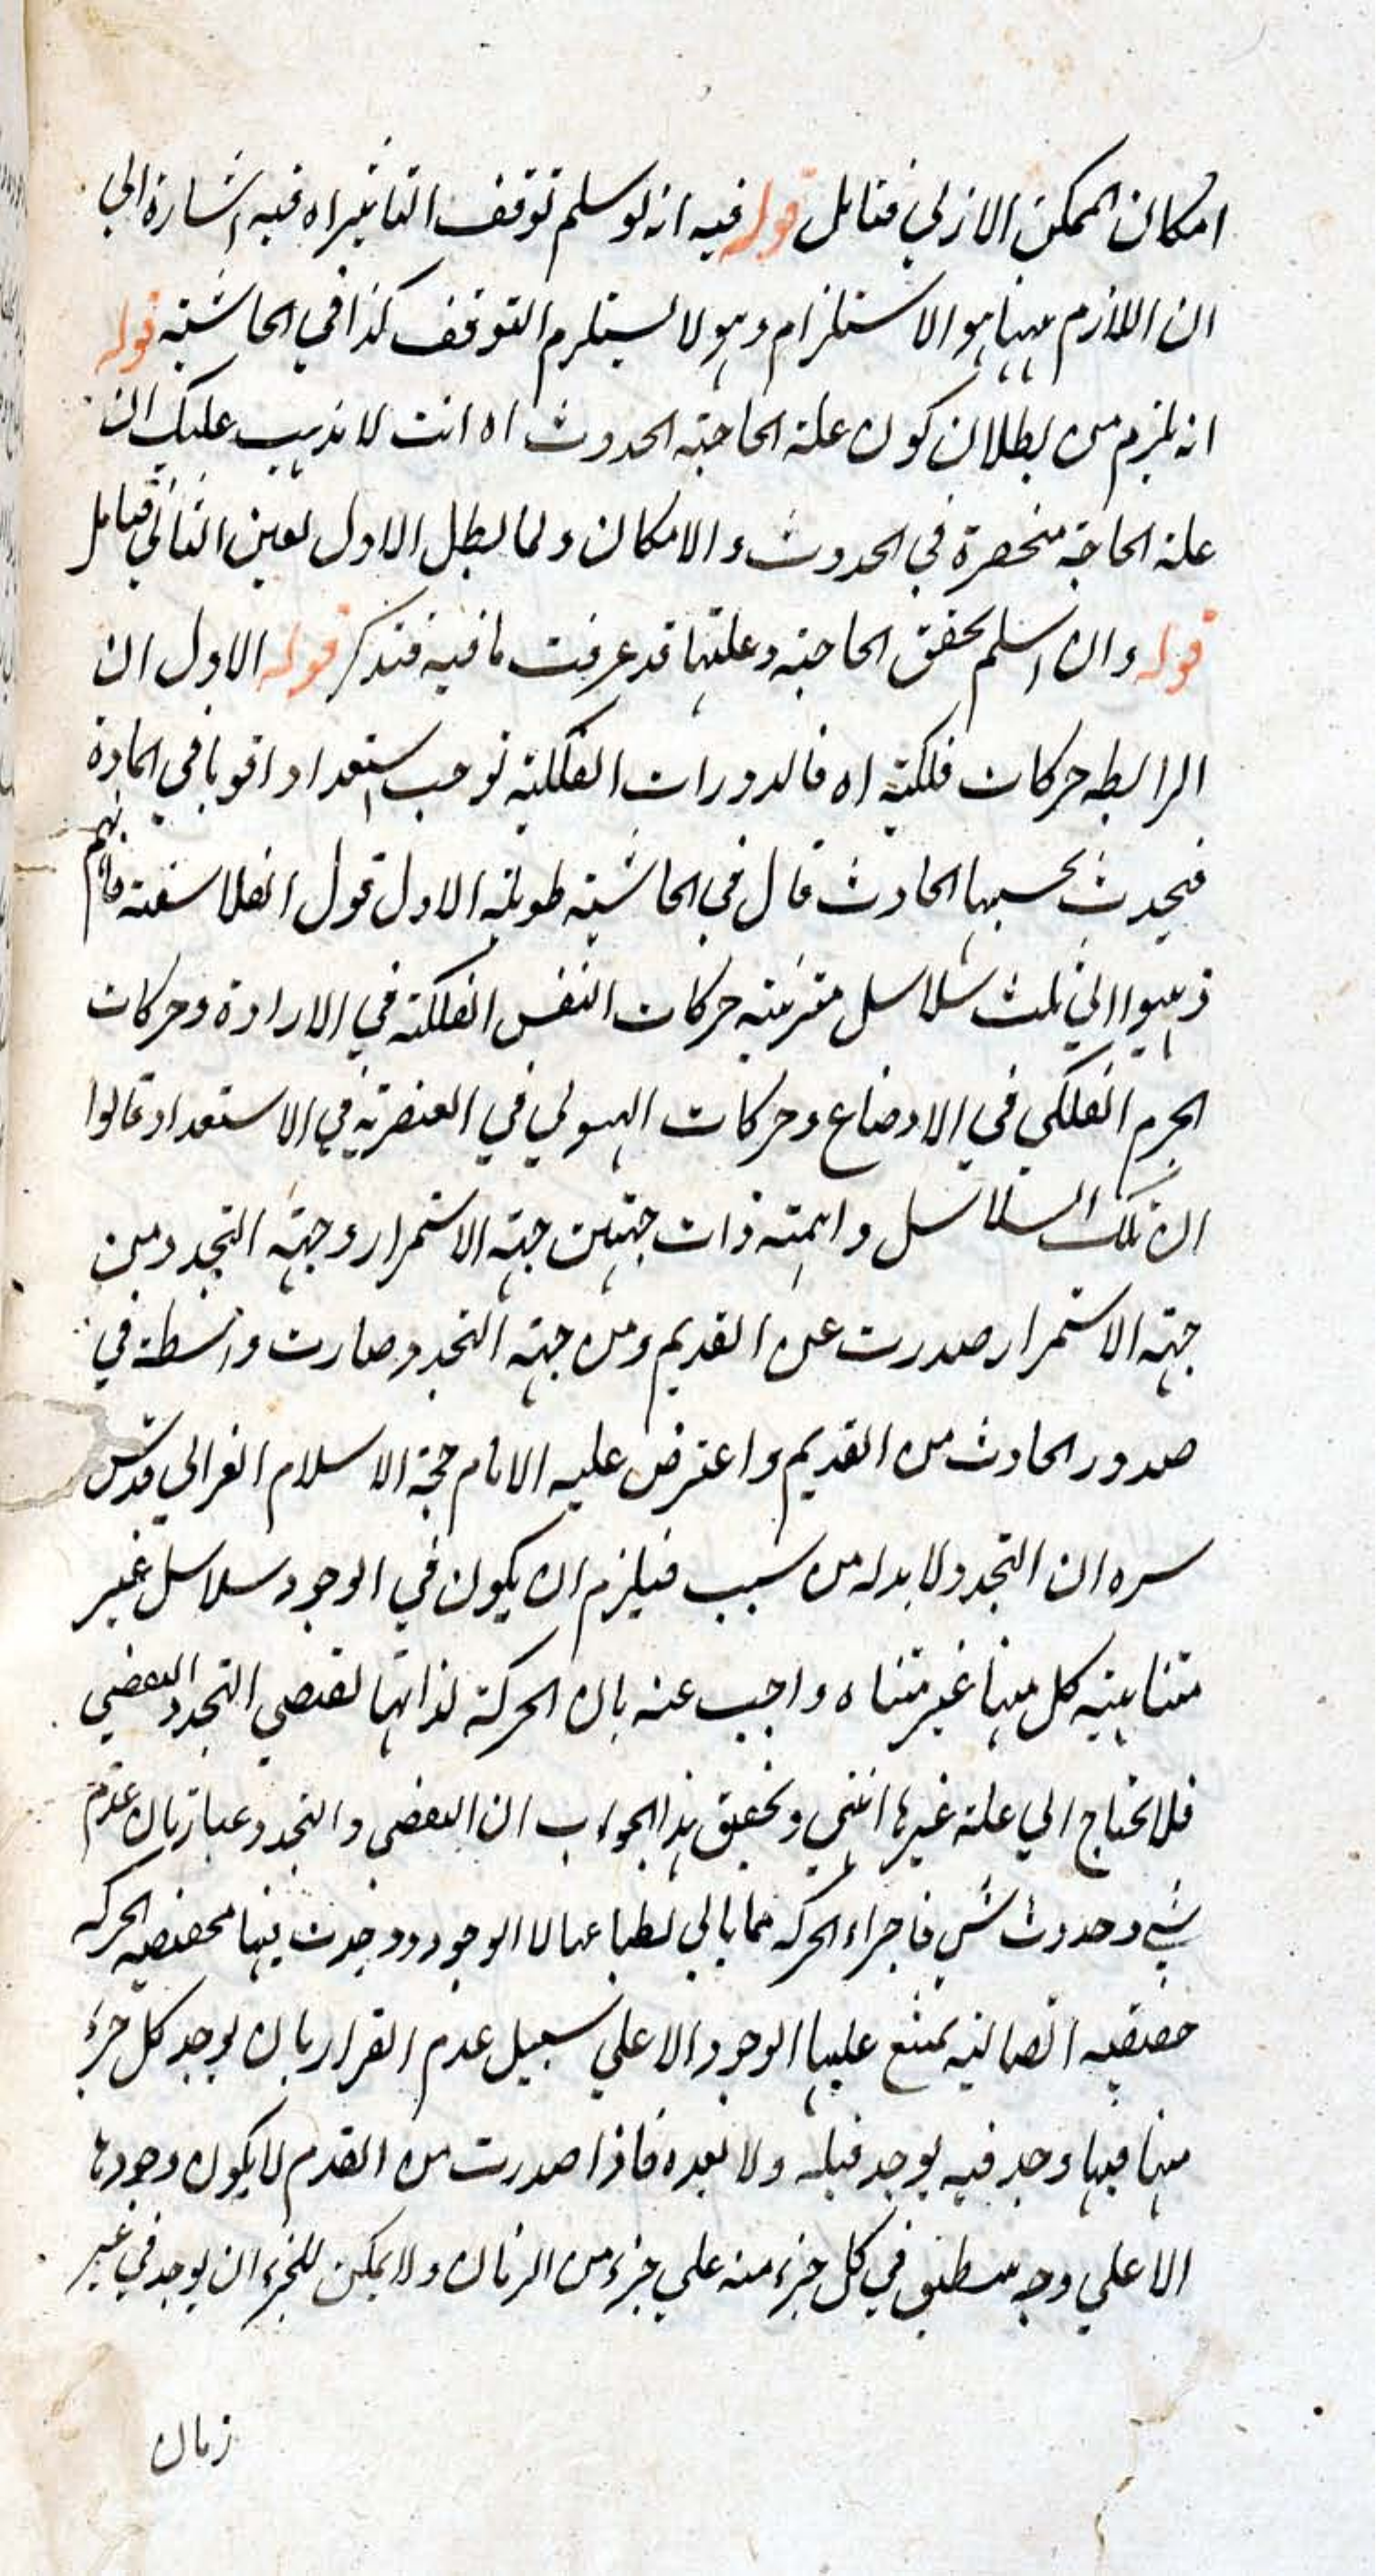 امكان الممكن الازلي فتامل قوله فيه انه لو سلم توقف التاثير اه فيه اشارة الي
ان اللازم ههنا هو الاستلزام وهو لا يستلزم التوقف كذا في الحاشية قوله
انه يلزم من بطلان كون علة الحاجة الحدوث اه انت لا يذهب عليك ان
علة الحاجة منحصرة في الحدوث و الامكان ولما بطل الاول تعين الثاني فتامل
قوله وان اسلم تحقق الحاجة وعلتها قد عرفت ما فيه فتذكر قوله الاول ان
الرابطه حركات فلكية اه فالدورات الفلكية توجب استعدادا قويا في المادة
فيحدث بحسبها الحادث قال في الحاشية طويلة الاول قول الفلاسفة فانهم
ذهبوا الي ثلث سلاسل مترتبة حركات النفس الفلكية في الارادة وحركات
الجرم الفلكي في الاوضاع وحركات الهيولي في العنصرية في الاستعداد قالوا
ان تلك السلاسل دائمة ذات جهتين جهة الاستمرار وجهة التجدد من
جهة الاستمرار صدرت عن القديم ومن جهة التجدد صارت واسطة في
صدور الحادث من القديم واعترض عليه الامام حجة الاسلام الغزالي قدس
سره ان التجدد لا بد له من سبب فيلزم ان يكون في الوجود سلاسل غير
متناهية كل منها غير متناه واجيب عنه بان الحركة لذاتها تقتضي التجدد التقضي
فلا تحتاج الي علة غيرها انتهي وتحقيق هذا الجواب ان التقضي والتجدد عبارتان عدم
شي وحدوث شي فاجزاء الحركة مما يابي لطباعها لا الوجود وجدت فيها الحركة
حقيقة اتصالية يمتنع عليها الوجود الا علي سبيل عدم القرار بان يوجد كل جزء
منها فيها وجد فيه يوجد قبله ولا بعده فاذا صدرت من القدم لا يكون وجودها
الا علي وجه ينطبق في كل جزء منه علي جزء من الزمان ولا يمكن للجزء ان يوجد في غير
زمان